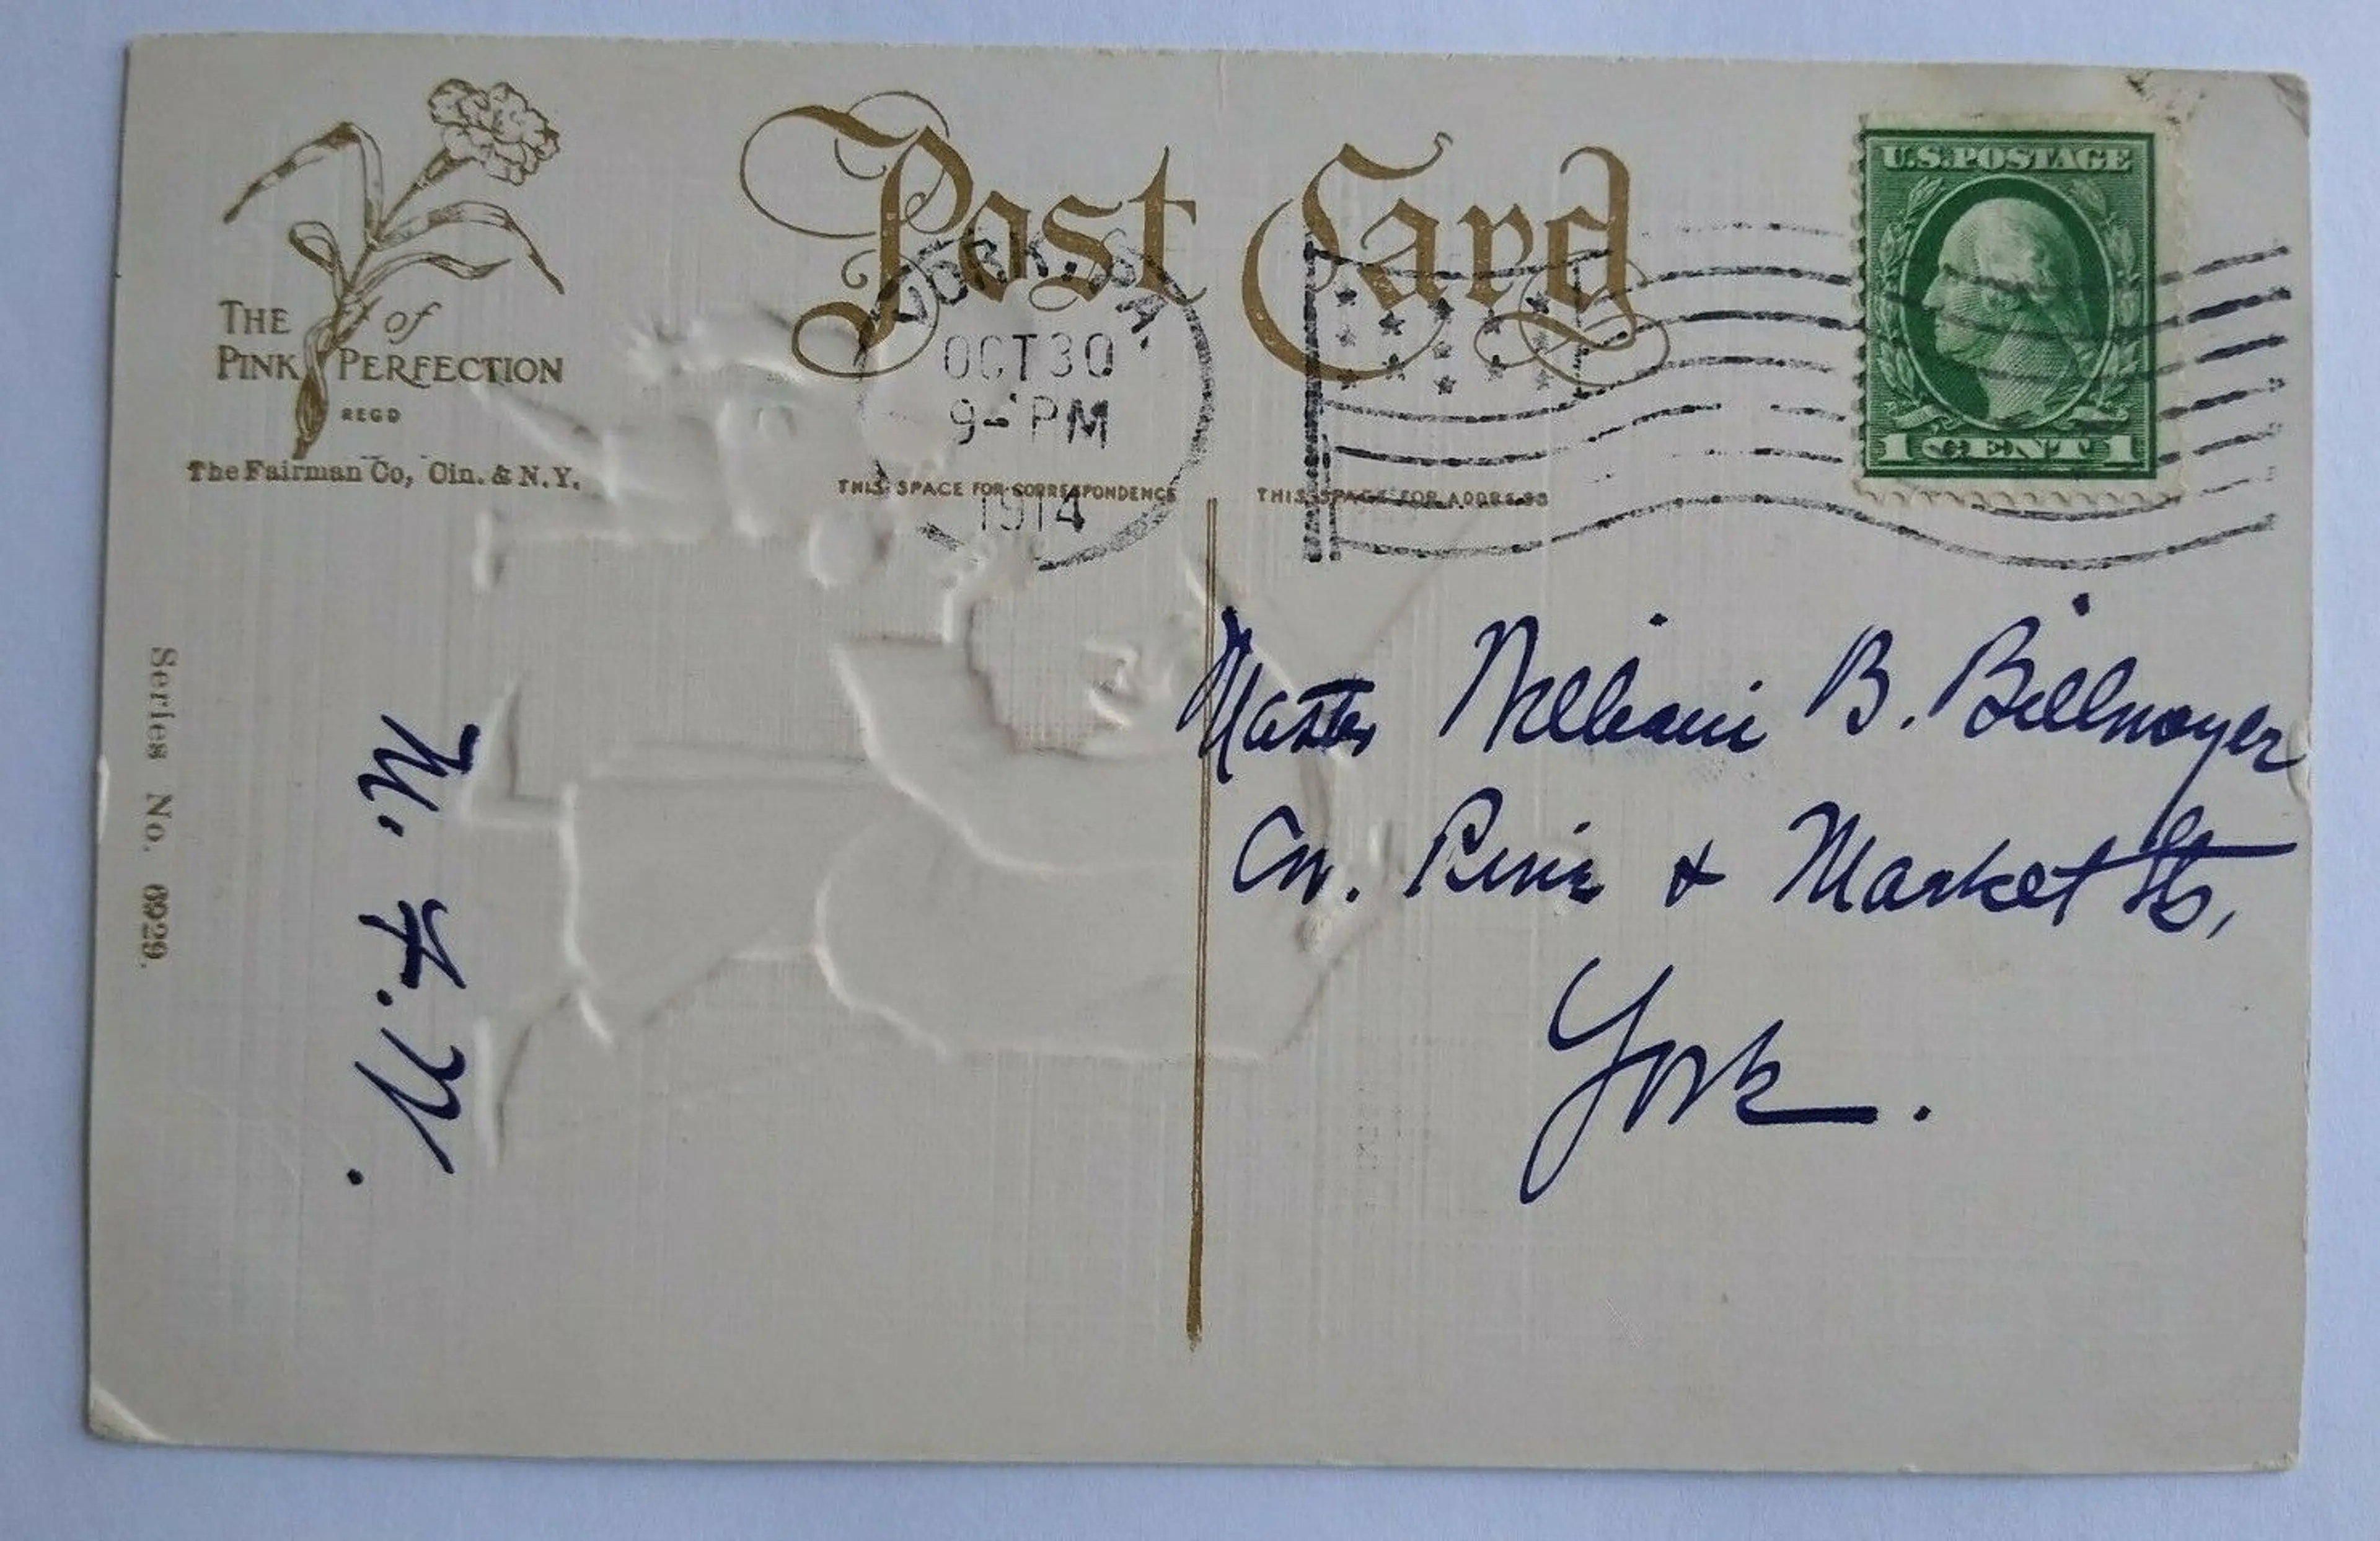 Post Card
THE of
PINK PERFECTION
REGD
The Fairman Co, Cin. & N.Y.
YORK, PA.
OCT 30
9- PM
1914
U.S. POSTAGE
1 CENT 1
THIS SPACE FOR CORRESPONDENCE
THIS SPACE FOR ADDRESS
Series No. 6929.
Master William B. Billmeyer
Cor. Pine & Market Sts,
York.